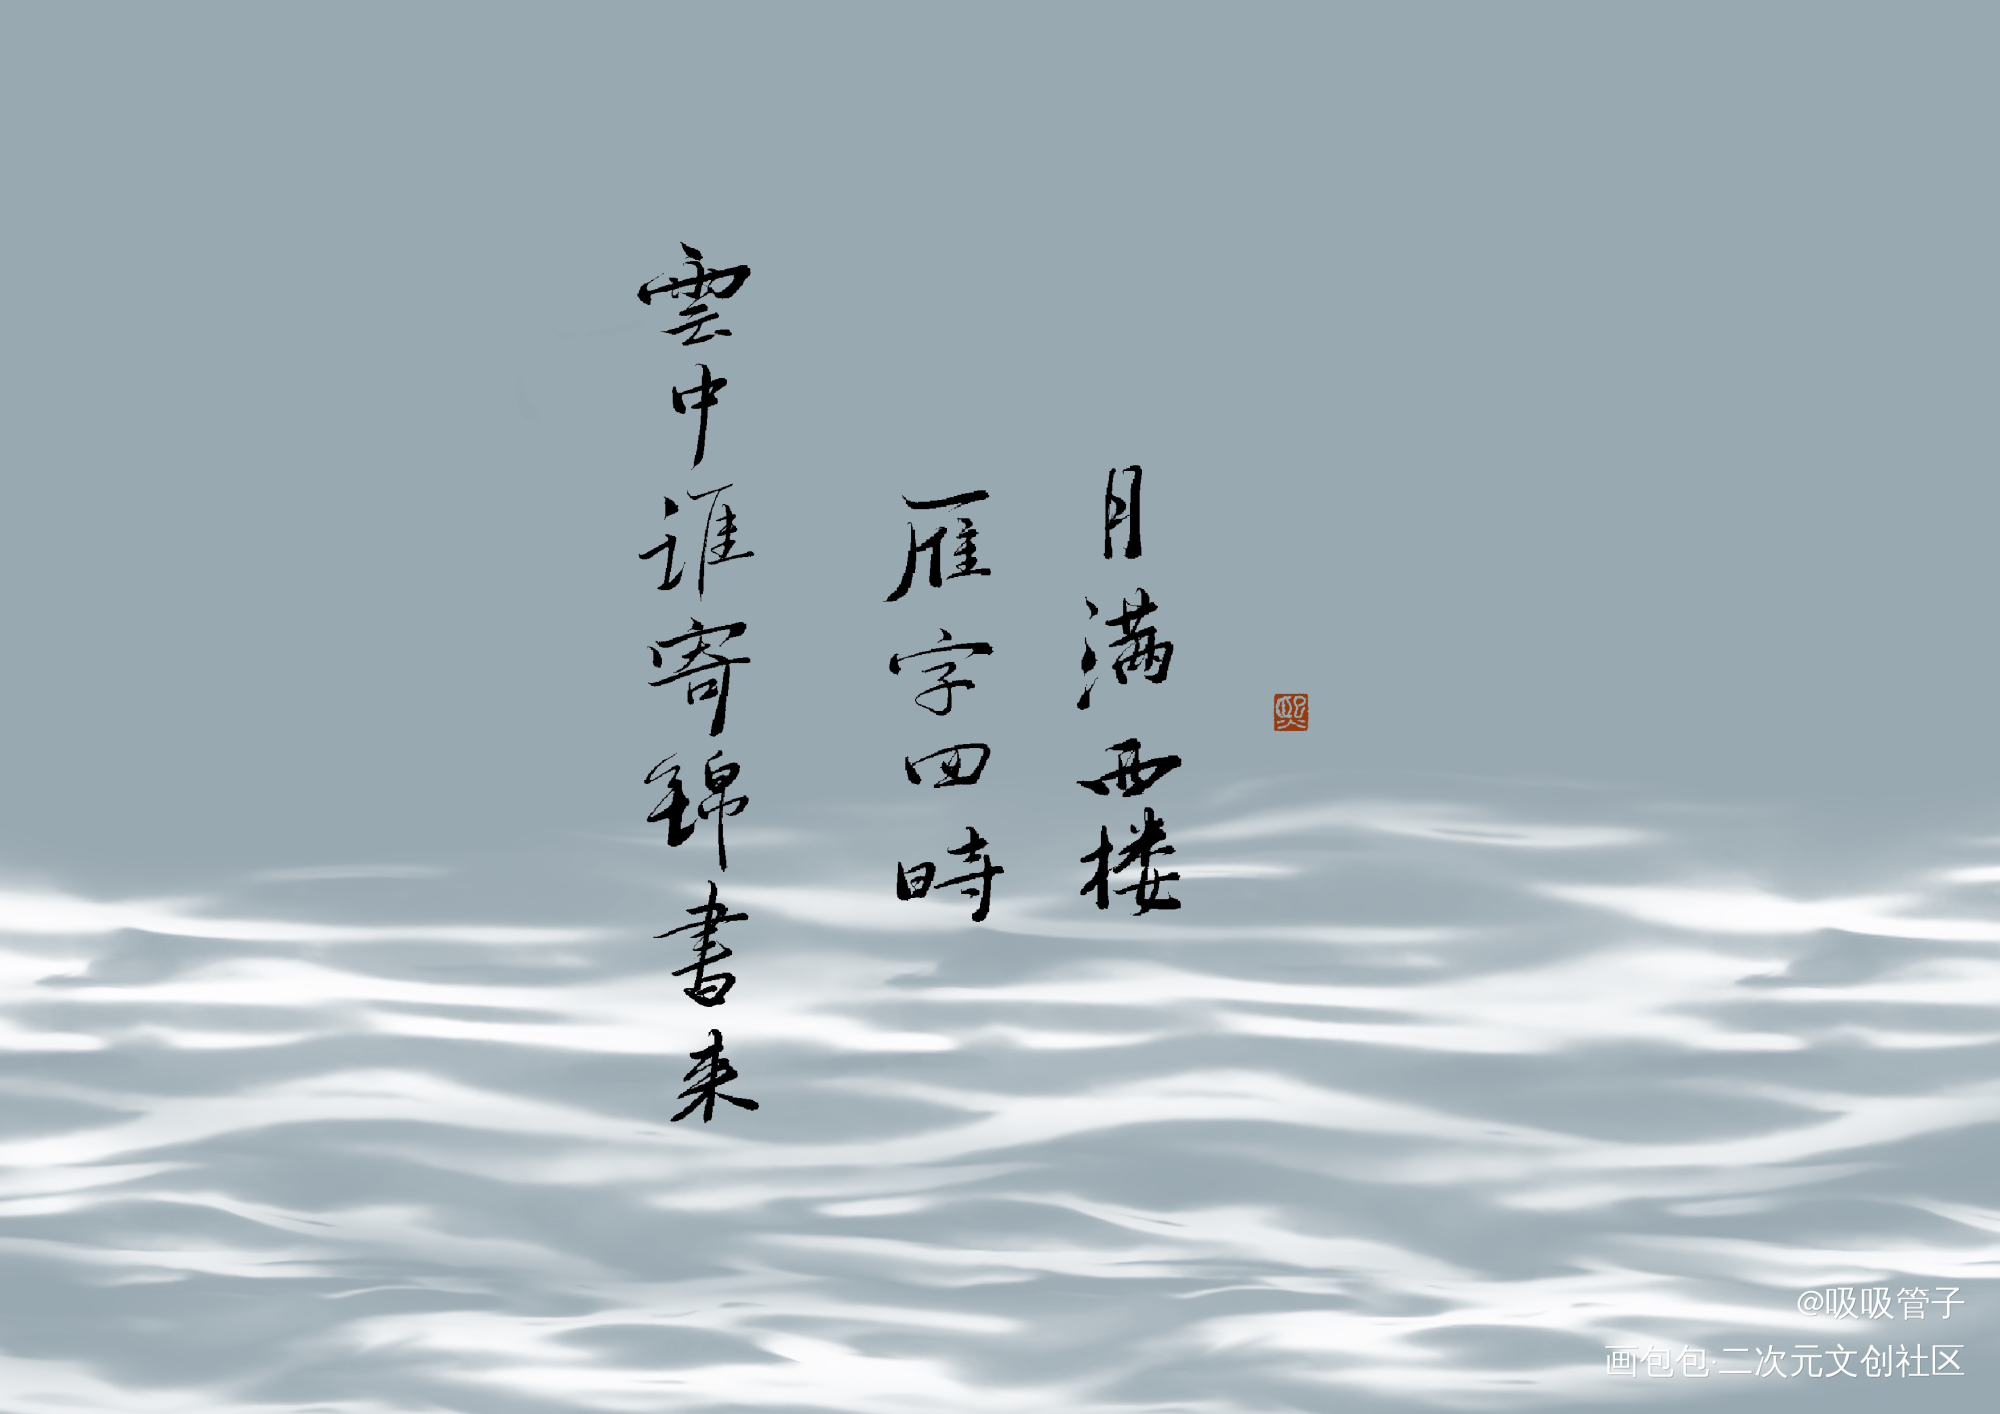 雲中谁寄锦書来
雁字回時
月满西楼
熙
@吸吸管子
画包包·二次元文创社区